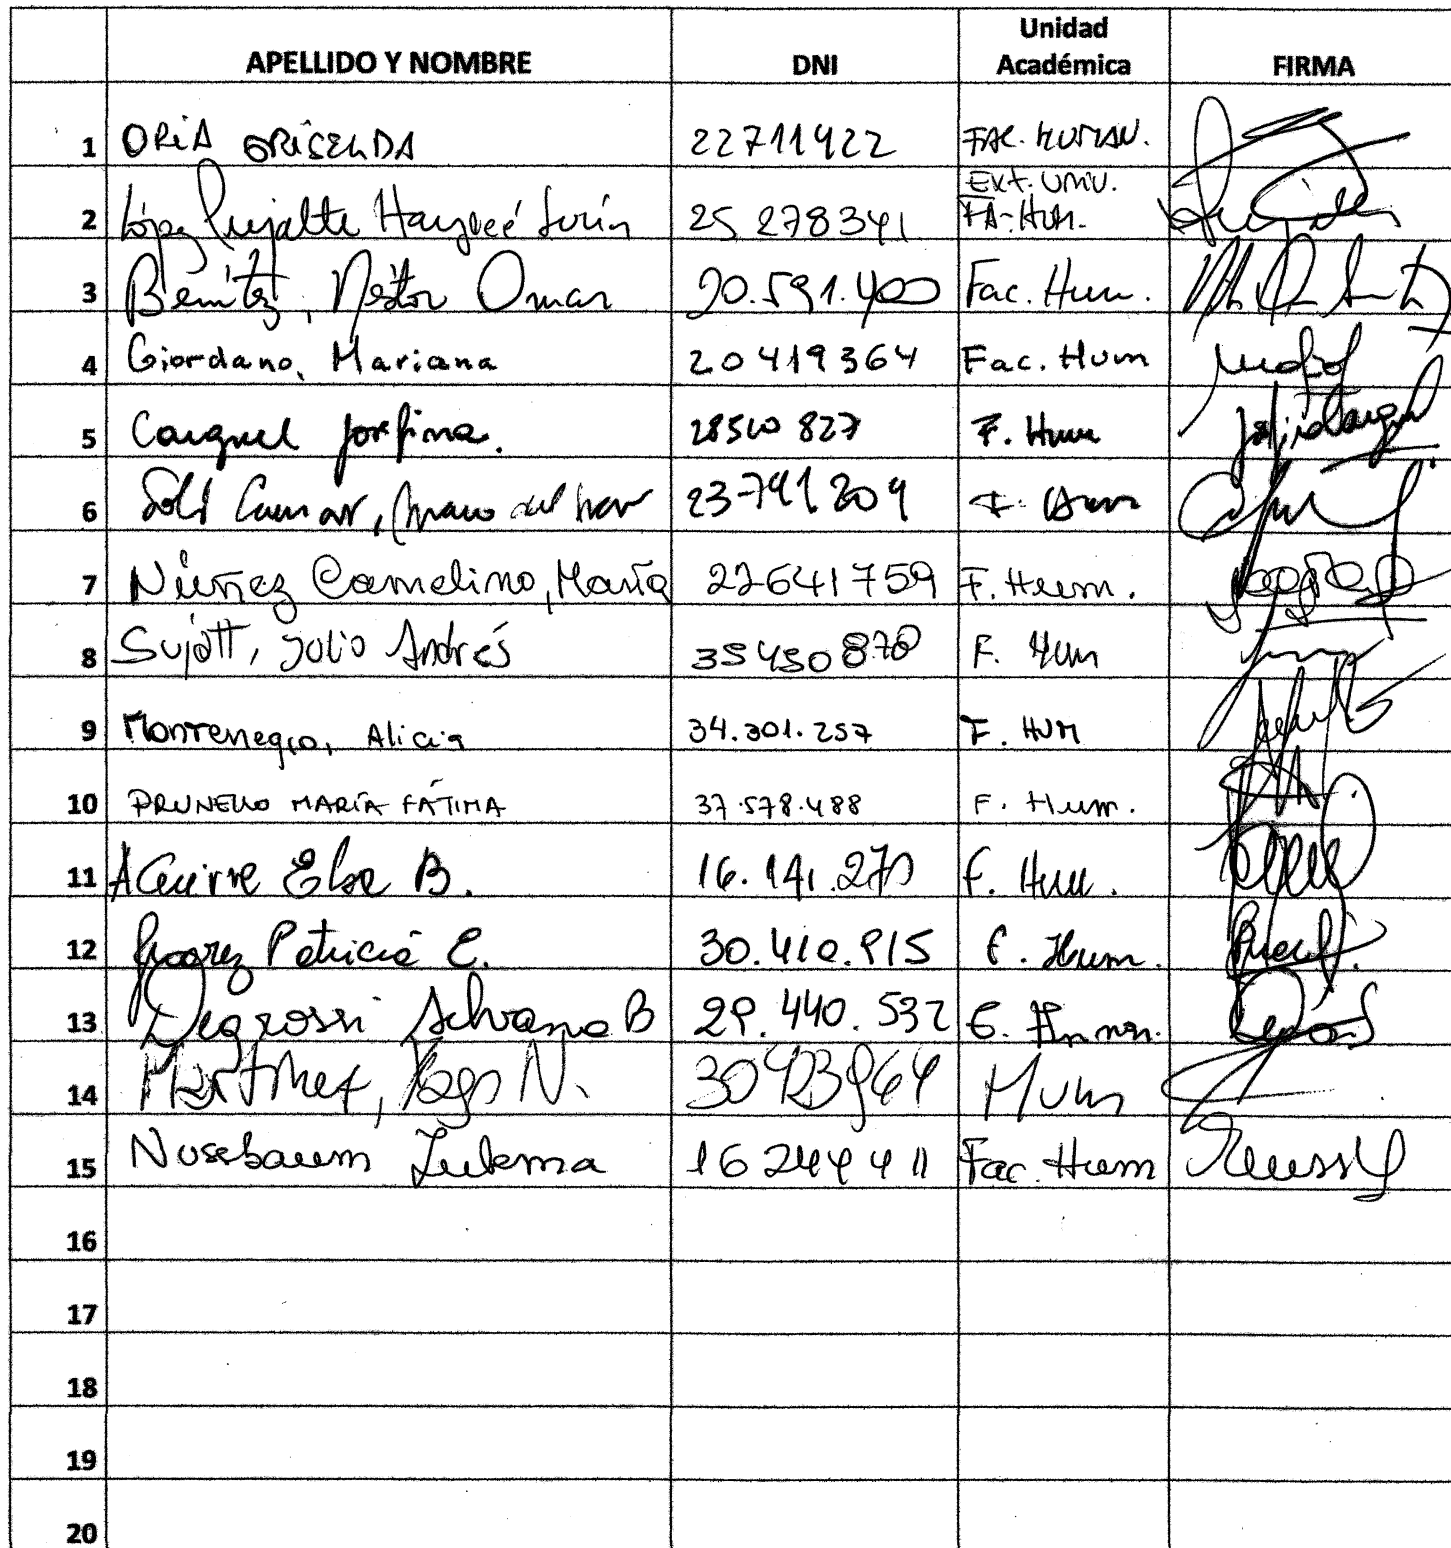 APELLIDO Y NOMBRE DNI Unidad Académica FIRMA
1 ORIA GRISELDA 22711422 FAC. HUMAN.
2 López Pujalte Haydeé 25 278341 EXT. UNIV. FA-HUM.
3 Benítez, Néstor Omar 20.591.400 Fac. Hum.
4 Giordano, Mariana 20419364 Fac. Hum
5 Cargnel Josefina. 28510 827 F. Hum
6 23791209
7 Núñez Camelino, María 22641759 F. Hum.
8 Sujatt, Julio Andrés 35450870 F. Hum
9 Montenegro, Alicia 34.301.257 F. HUM
10 PRUNELLO MARÍA FÁTIMA 37.578.488 F. Hum.
11 AGuirre Elsa B. F. Hum.
12 Juarez Patricia E. 30.410.915 F. Hum.
13 Degrossi Silvana B 29.440.532
14 Martinez, N. Hum
15 Nussbaum Zulema 16 244 411 Fac. Hum
16
17
18
19
20